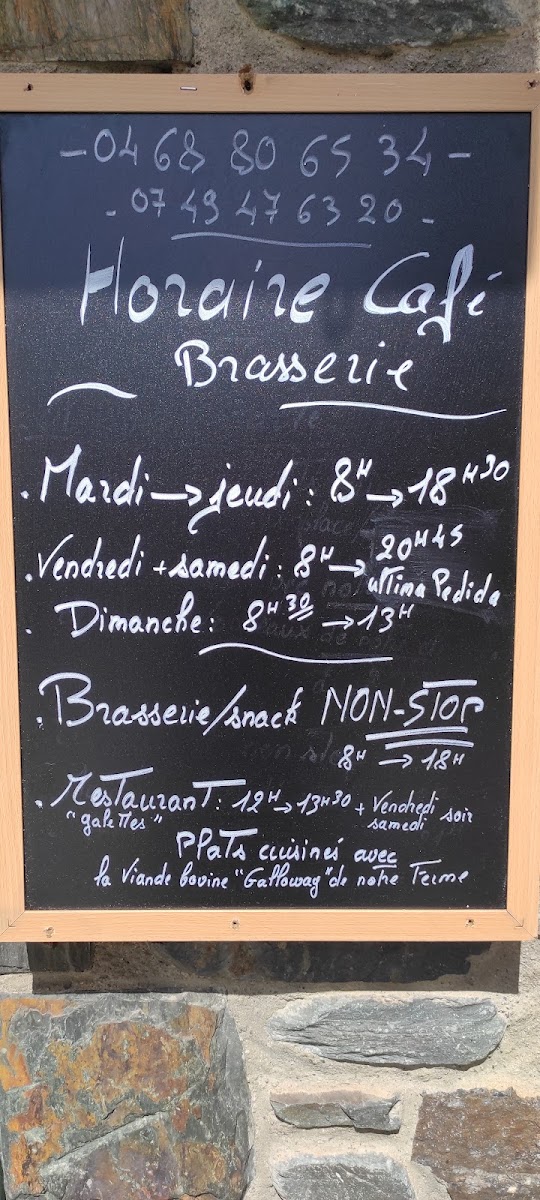 - 04 68 80 65 34 -
- 07 49 47 63 20 -
Horaire Café
Brasserie
. Mardi → jeudi : 8H → 18H30
. Vendredi + samedi : 8H → 20H45
ultima Pedida
. Dimanche : 8H30 → 13H
. Brasserie/snack NON-STOP
8H → 18H
. Restaurant : 12H → 13H30 + Vendredi samedi soir
"galettes"
Plats cuisinés avec
la Viande bovine "Galloway" de notre Ferme